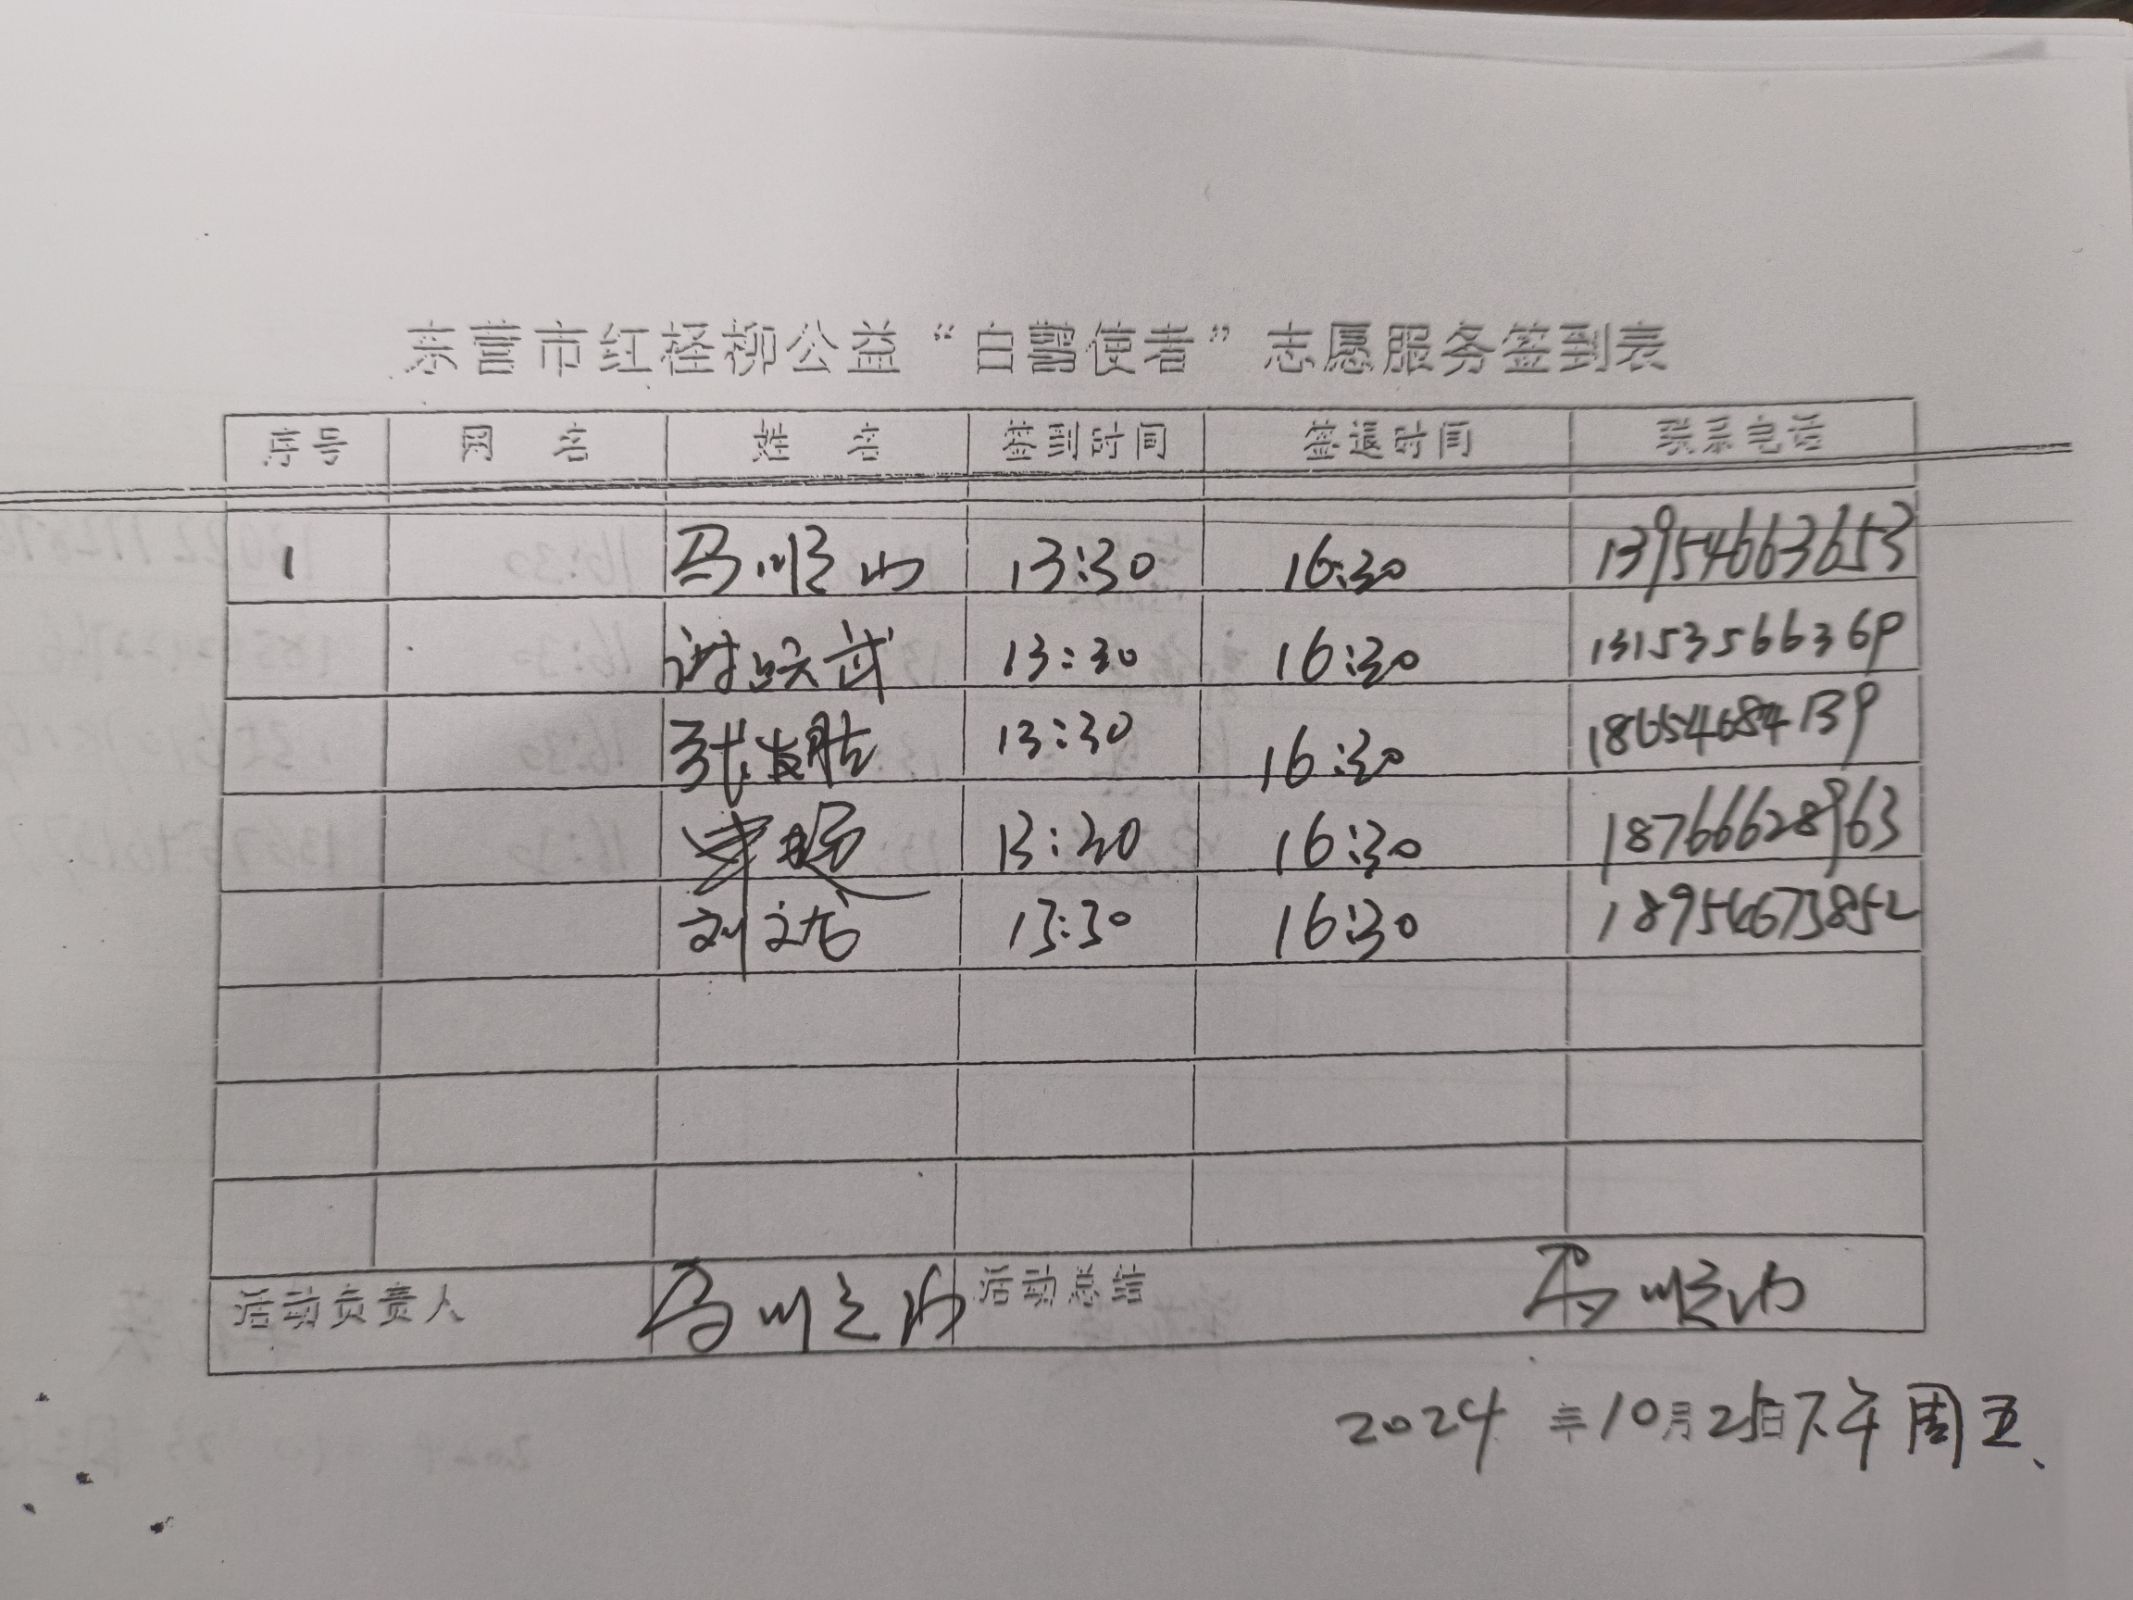 东营市红柽柳公益“白鹭使者”志愿服务签到表
序号 网名 姓名 签到时间 签退时间 联系电话
1 马顺山 13:30 16:30 13954663653
13:30 16:30 13153566369
张发胜 13:30 16:30 18654684139
13:30 16:30 18766628963
刘文龙 13:30 16:30 18954673852
活动负责人 马顺山 活动总结 马顺山
2024年10月25日下午周五、